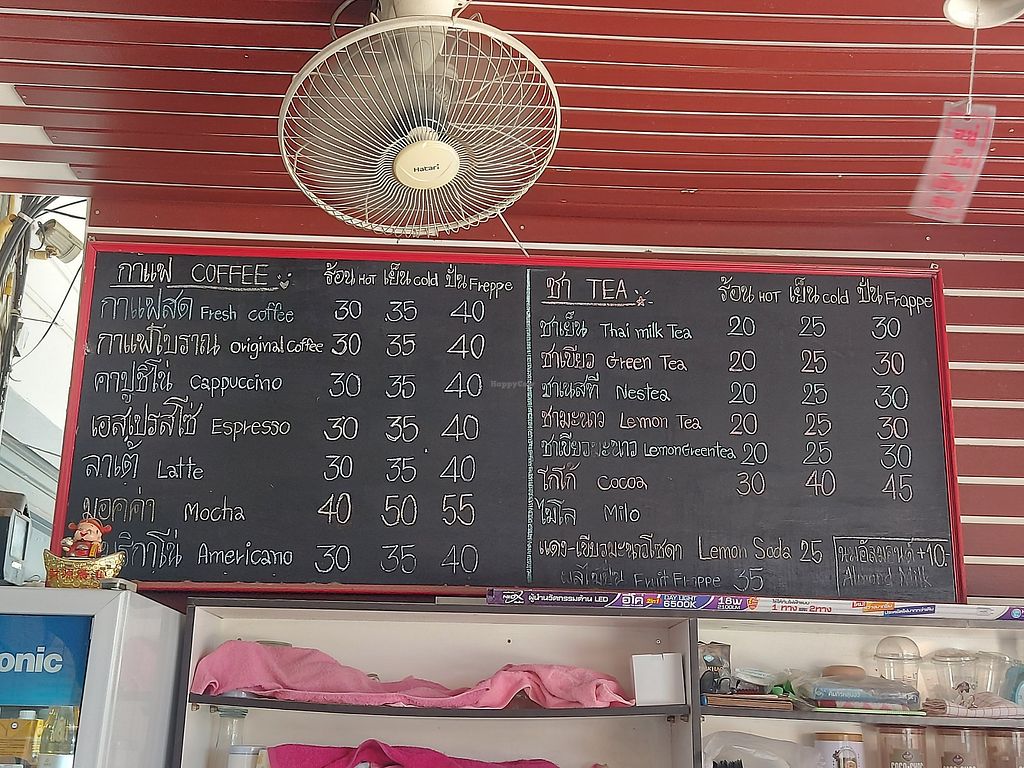 Hatari
กาแฟ COFFEE ร้อน HOT เย็น cold ปั่น Freppe
กาแฟสด Fresh coffee 30 35 40
กาแฟโบราณ original Coffee 30 35 40
คาปูชิโน่ Cappuccino 30 35 40
เอสเปรสโซ่ Espresso 30 35 40
ลาเต้ Latte 30 35 40
มอคค่า Mocha 40 50 55
ริกาโน่ Americano 30 35 40
ชา TEA ร้อน HOT เย็น cold ปั่น Frappe
ชาเย็น Thai milk Tea 20 25 30
ชาเขียว Green Tea 20 25 30
ชาเนสที Nestea 20 25 30
ชามะนาว Lemon Tea 20 25 30
ชาเขียวมะนาว LemonGreentea 20 25 30
โกโก้ Cocoa 30 40 45
ไมโล Milo
แดง-เขียวมะนาวโซดา Lemon Soda 25
ผลไม้ปั่น Fruit Frappe 35
นมอัลมอนด์ +10.
Almond Milk
HappyCow
ผู้นำนวัตกรรมด้าน LED
DAY LIGHT
6500K
16W
2100LM
1 ทาง และ 2 ทาง
onic